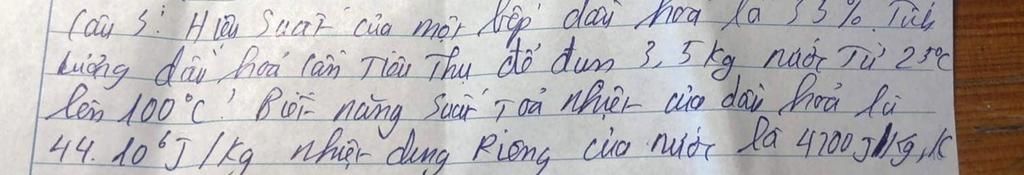 Câu 5: Hiệu Suất của một bếp dầu hoả là 35%. Tính
lượng dầu hoả cần Tiêu Thụ để đun 3,5 kg nước Từ 25°C
lên 100°C. Biết năng Suất Toả nhiệt của dầu hoả là
44.10⁶J/kg nhiệt dung Riêng của nước là 4200J/kg.K